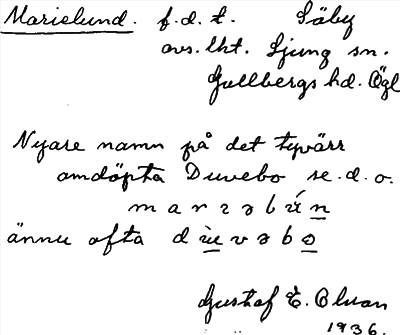 Marielund. f.d.t. Säby
avs. lht. Ljung sn.
Gullbergs hd. Ögl
Nyare namn på det tyvärr
omdöpta Duvebo se.d.o.
ännu ofta d u v ə b o
Gustaf E. Olson
1936.